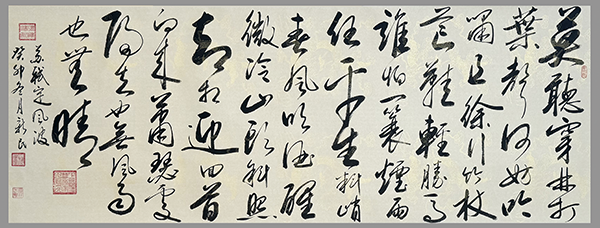 莫聽穿林打
葉聲何妨吟
嘯且徐行竹杖
芒鞋輕勝馬
誰怕一蓑煙雨
任平生料峭
春風吹酒醒
微冷山頭斜照
却相迎回首
向來蕭瑟處
歸去也無風雨
也無晴
蘇軾定風波
癸卯冬月